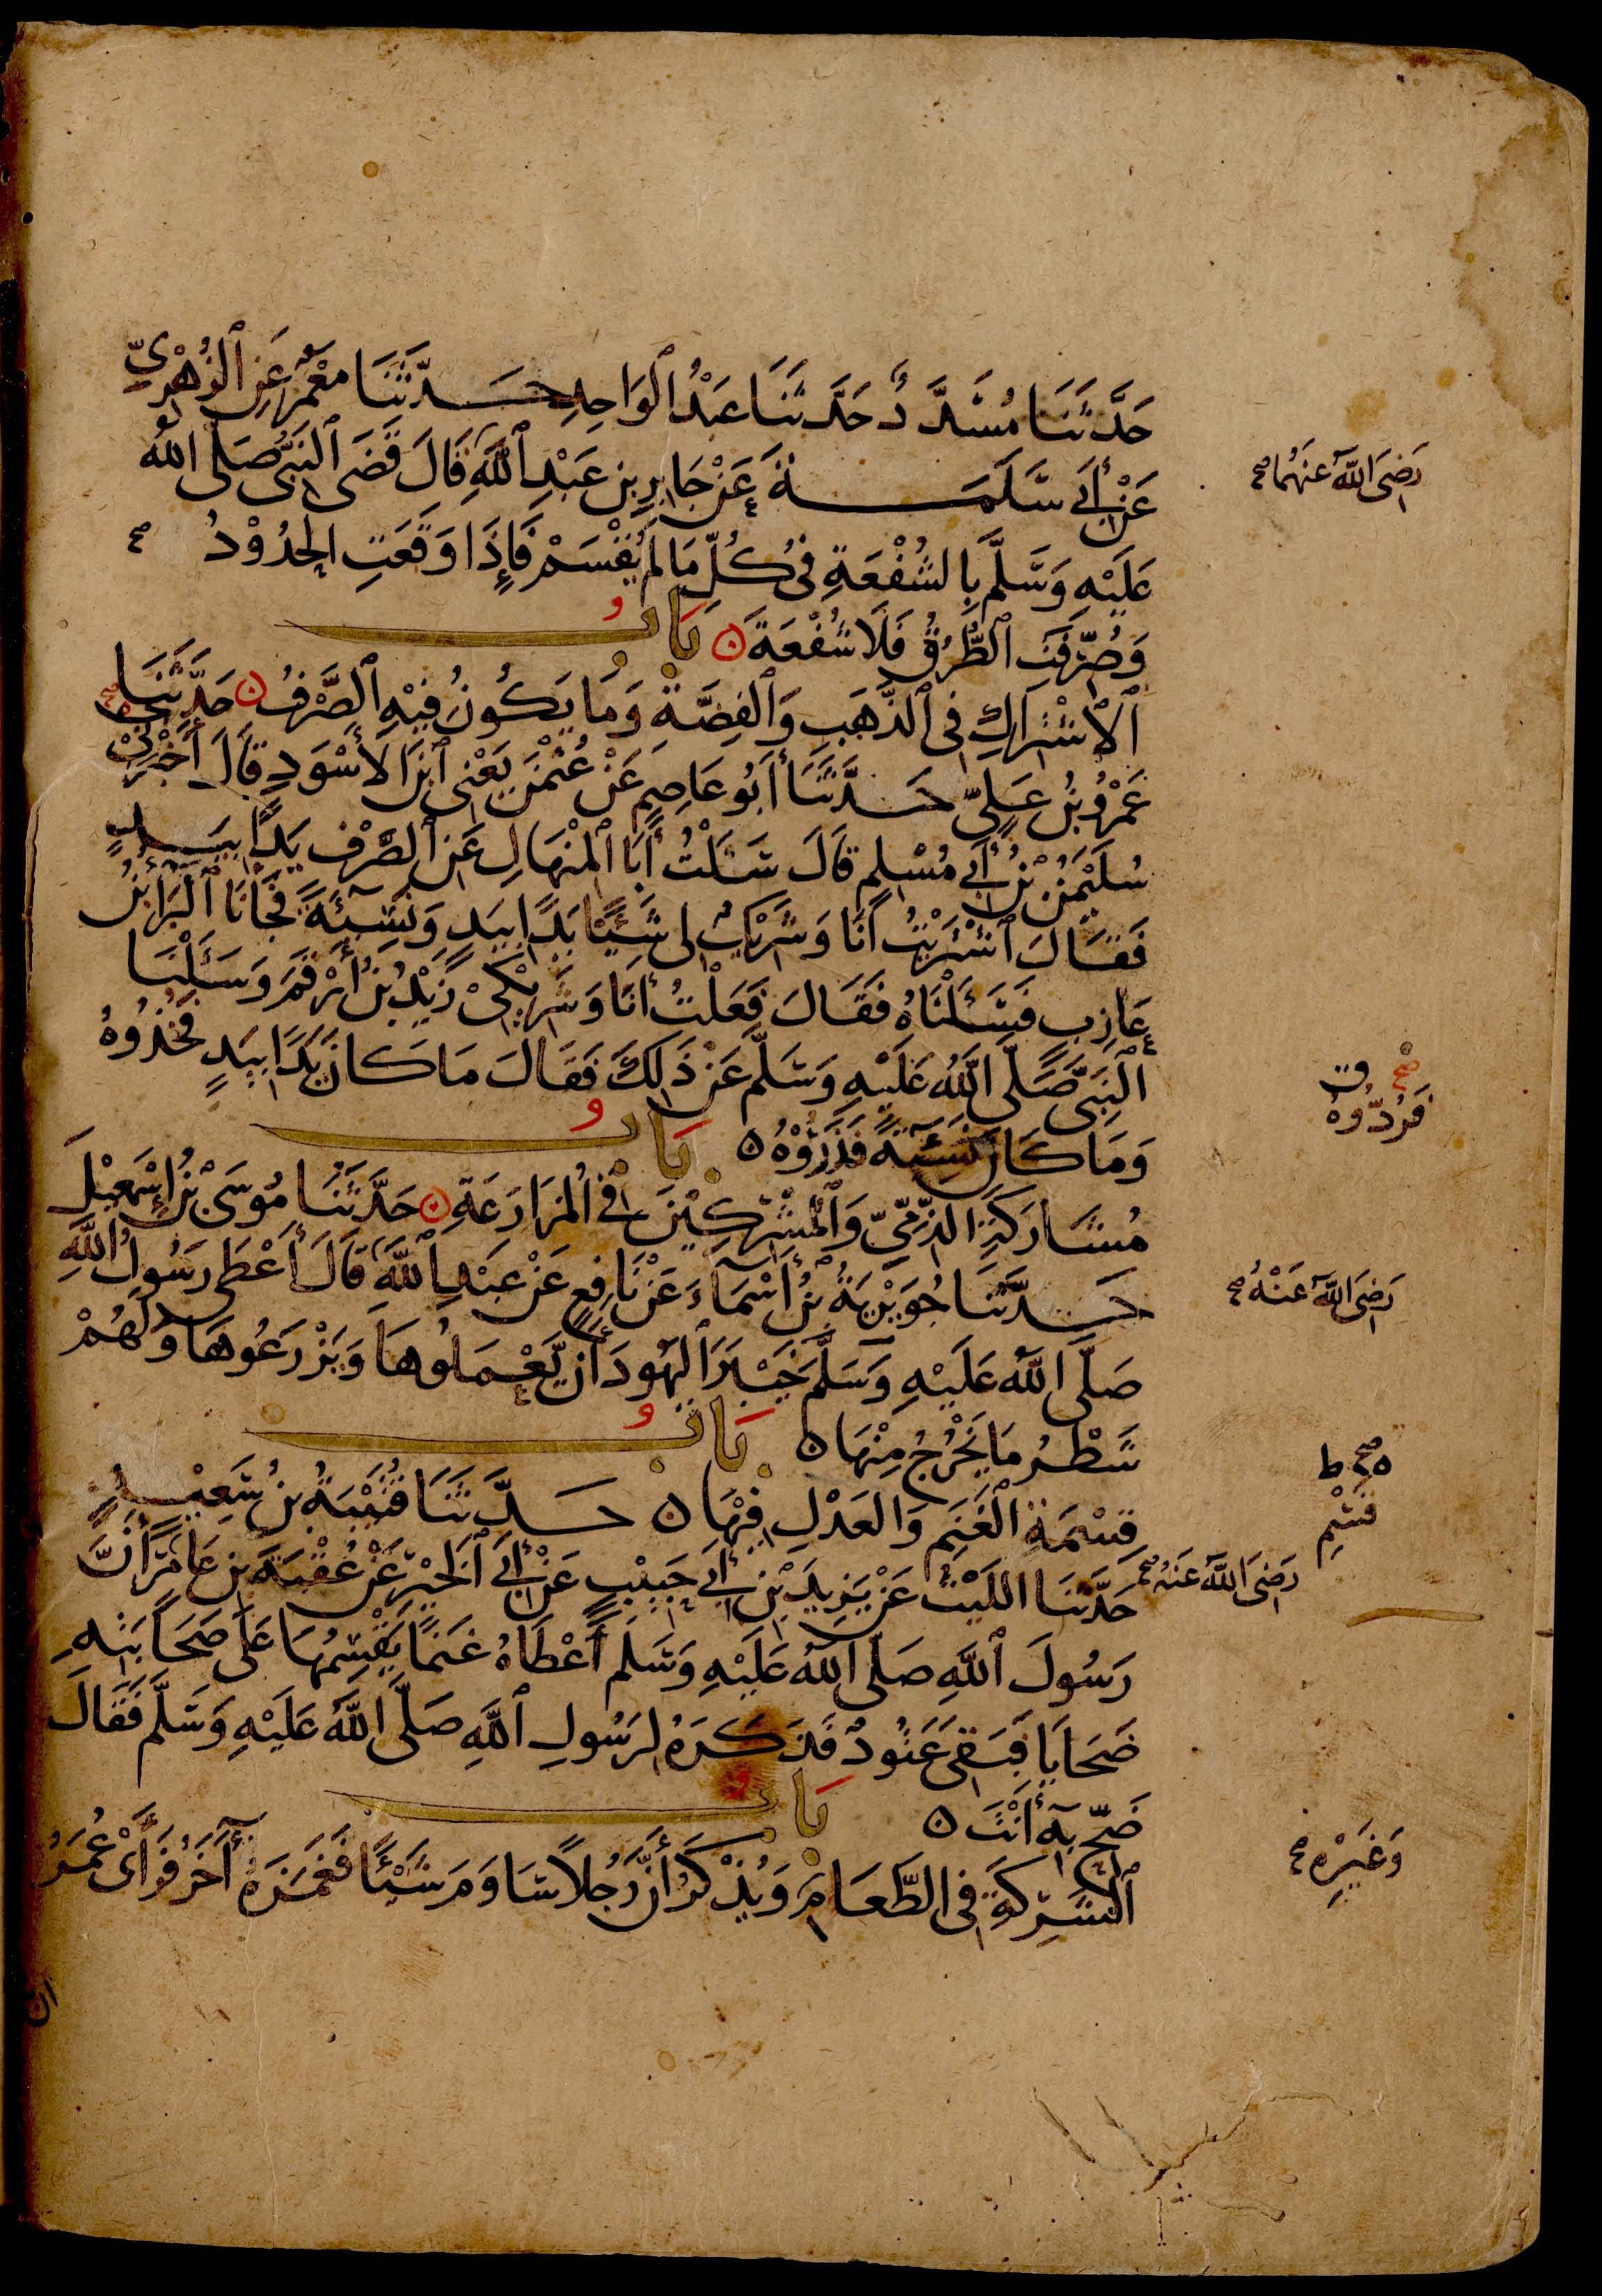 حَدَّثَنَا مُسَدَّدٌ حَدَّثَنَا عَبْدُ الْوَاحِدِ حَدَّثَنَا مَعْمَرٌ عَنِ الزُّهْرِيِّ
عَنْ أَبِي سَلَمَةَ عَنْ جَابِرِ بْنِ عَبْدِ اللَّهِ قَالَ قَضَى النَّبِيُّ صَلَّى اللَّهُ
رَضِيَ اللَّهُ عَنْهُمَا صح
عَلَيْهِ وَسَلَّمَ بِالشُّفْعَةِ فِي كُلِّ مَا لَمْ يُقْسَمْ فَإِذَا وَقَعَتِ الْحُدُوْدُ
وَصُرِّفَتِ الطُّرُقُ فَلَا شُفْعَةَ بَابُ
الْاشْتِرَاكِ فِي الذَّهَبِ وَالْفِضَّةِ وَمَا يَكُونُ فِيْهِ الصَّرْفُ حَدَّثَنِي
عَمْرُو بْنُ عَلِيٍّ حَدَّثَنَا أَبُو عَاصِمٍ عَنْ عُثْمٰنَ يَعْنِي ابْنَ الْأَسْوَدِ قَالَ أَخْبَرَنِيْ
سُلَيْمٰنُ بْنُ أَبِي مُسْلِمٍ قَالَ سَأَلْتُ أَبَا الْمِنْهَالِ عَنِ الصَّرْفِ يَدًا بِيَدٍ
فَقَالَ اشْتَرَيْتُ أَنَا وَشَرِيْكٌ لِي شَيْئًا يَدًا بِيَدٍ وَنَسِيْئَةً فَجَاءَنَا الْبَرَاءُ بْنُ
عَازِبٍ فَسَأَلْنَاهُ فَقَالَ فَعَلْتُ أَنَا وَشَرِيْكِيْ زَيْدُ بْنُ أَرْقَمَ وَسَأَلْنَا
النَّبِيَّ صَلَّى اللَّهُ عَلَيْهِ وَسَلَّمَ عَنْ ذَلِكَ فَقَالَ مَا كَانَ يَدًا بِيَدٍ فَخُذُوهُ
وَمَا كَانَ نَسِيْئَةً فَذَرُوْهُ بَابُ
فَرُدُّوهُ
مُشَارَكَةِ الذِّمِّيِّ وَالْمُشْرِكِيْنَ فِي الْمُزَارَعَةِ حَدَّثَنَا مُوسَى بْنُ إِسْمٰعِيْلَ
حَدَّثَنَا جُوَيْرِيَةُ بْنُ أَسْمَاءَ عَنْ نَافِعٍ عَنْ عَبْدِ اللَّهِ قَالَ أَعْطَى رَسُولُ اللَّهِ
رَضِيَ اللَّهُ عَنْهُ صح
صَلَّى اللَّهُ عَلَيْهِ وَسَلَّمَ خَيْبَرَ الْيَهُودَ أَنْ يَّعْمَلُوهَا وَيَزْرَعُوهَا وَلَهُمْ
شَطْرُ مَا يَخْرُجُ مِنْهَا بَابُ
قِسْمَةِ الْغَنَمِ وَالْعَدْلِ فِيْهَا حَدَّثَنَا قُتَيْبَةُ بْنُ سَعِيْدٍ
قَسْمِ
حَدَّثَنَا اللَّيْثُ عَنْ يَزِيدَ بْنِ أَبِي حَبِيْبٍ عَنْ أَبِي الْخَيْرِ عَنْ عُقْبَةَ بْنِ عَامِرٍ أَنَّ
رَضِيَ اللَّهُ عَنْهُ صح
رَسُولَ اللَّهِ صَلَّى اللَّهُ عَلَيْهِ وَسَلَّمَ أَعْطَاهُ غَنَمًا يَقْسِمُهَا عَلَى صَحَابَتِهِ
ضَحَايَا فَبَقِيَ عَتُودٌ فَذَكَرَهُ لِرَسُولِ اللَّهِ صَلَّى اللَّهُ عَلَيْهِ وَسَلَّمَ فَقَالَ
ضَحِّ بِهِ أَنْتَ بَابُ
الشَّرِكَةِ فِي الطَّعَامِ وَيُذْكَرُ أَنَّ رَجُلًا سَاوَمَ شَيْئًا فَغَمَزَهُ آخَرُ فَرَأَى عُمَرُ
وَغَيْرِهِ صح